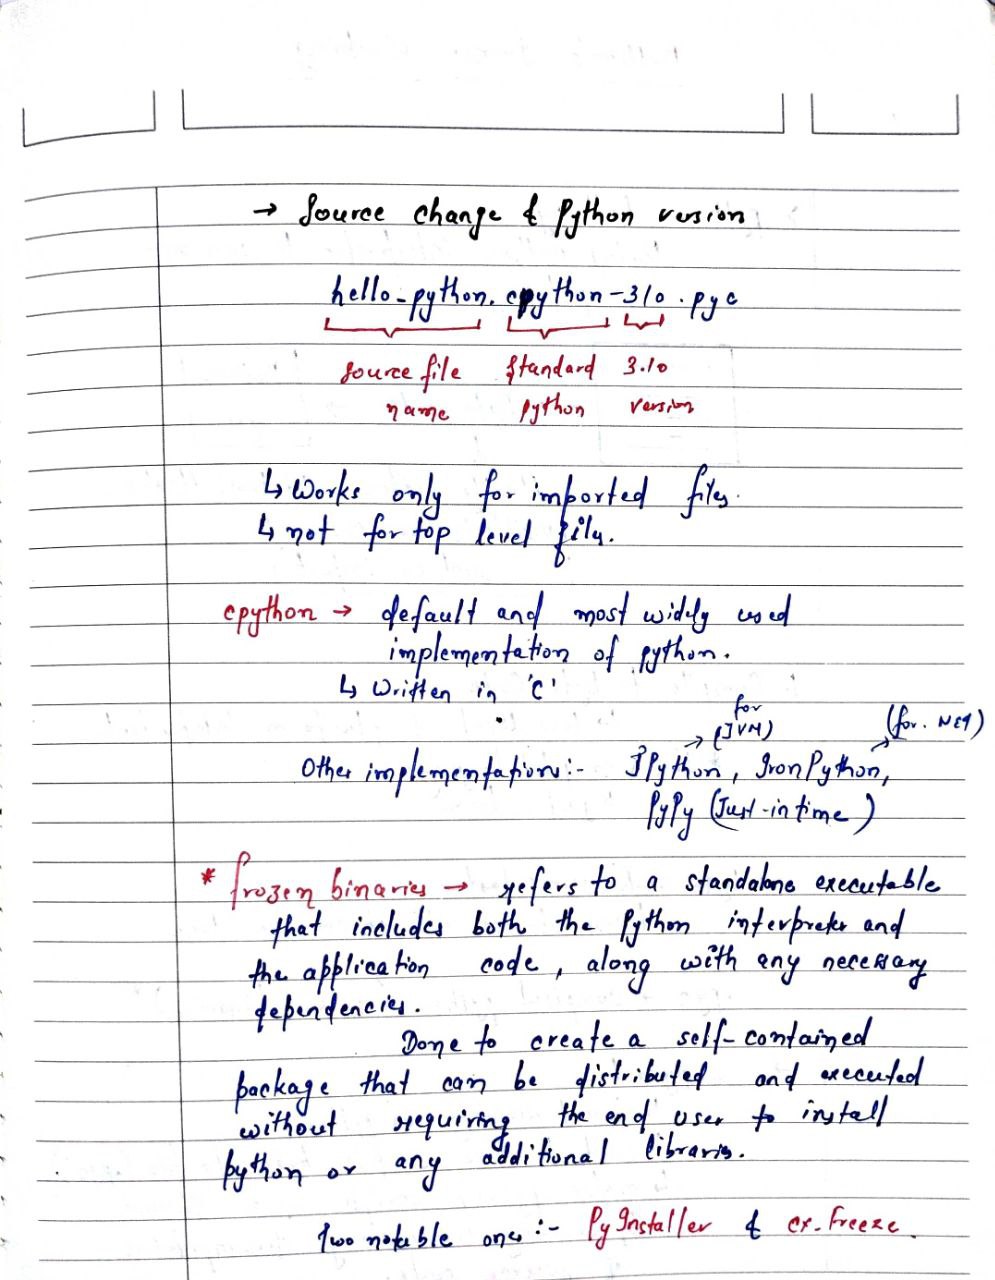 → Source change & Python version
hello-python. cpython-310.pyc
source file standard 3.10
name python version
↳ Works only for imported files.
↳ not for top level files.
cpython → default and most widely used
implementation of python.
↳ Written in 'C'
for
→ (JVM) (for .NET)
Other implementations:- JPython, IronPython,
PyPy (Just-in time)
* frozen binaries → refers to a standalone executable
that includes both the Python interpreter and
the application code, along with any necessary
dependencies.
Done to create a self-contained
package that can be distributed and executed
without requiring the end user to install
python or any additional libraries.
Two notable ones :- PyInstaller & cx-Freeze.